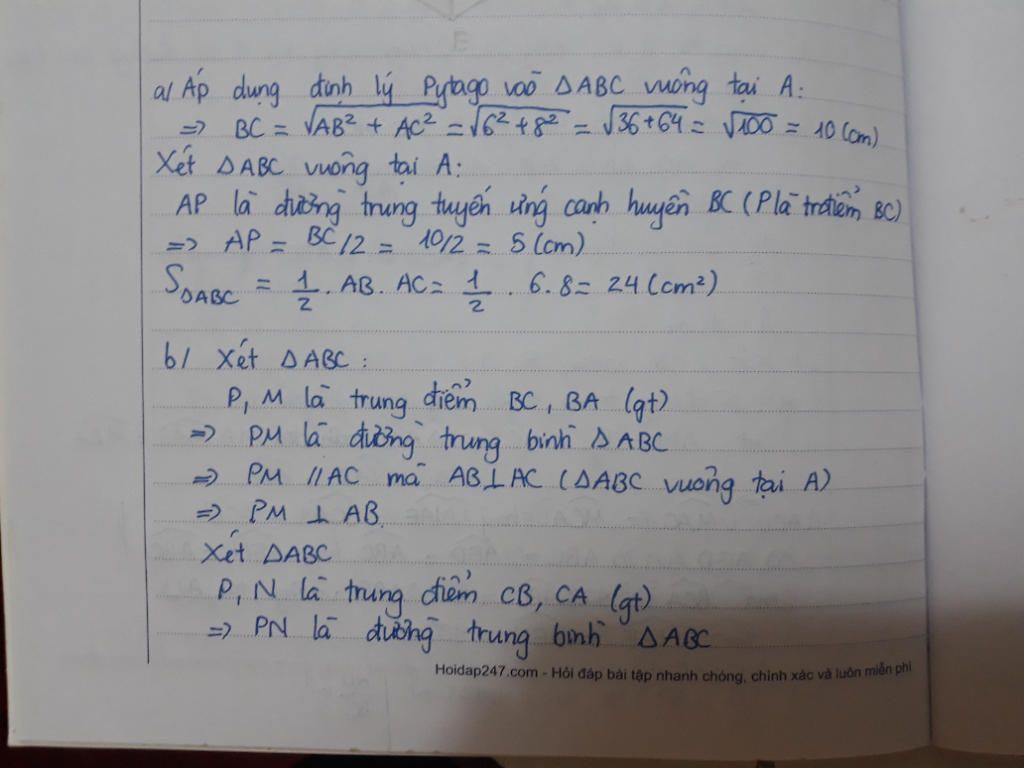 a/ Áp dụng định lý Pytago vào ΔABC vuông tại A:
=> BC = √AB² + AC² = √6² + 8² = √36+64 = √100 = 10 (cm)
Xét ΔABC vuông tại A:
AP là đường trung tuyến ứng cạnh huyền BC (P là trđiểm BC)
=> AP = BC/2 = 10/2 = 5 (cm)
SΔABC = 1/2 . AB. AC = 1/2 . 6.8 = 24 (cm²)
b/ Xét ΔABC:
P, M là trung điểm BC, BA (gt)
=> PM là đường trung bình ΔABC
=> PM // AC mà AB⊥AC (ΔABC vuông tại A)
=> PM ⊥ AB.
Xét ΔABC
P, N là trung điểm CB, CA (gt)
=> PN là đường trung bình ΔABC
Hoidap247.com - Hỏi đáp bài tập nhanh chóng, chính xác và luôn miễn phí